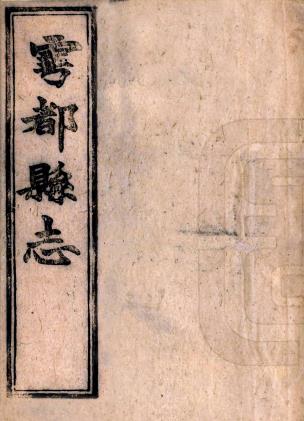 雩都縣志